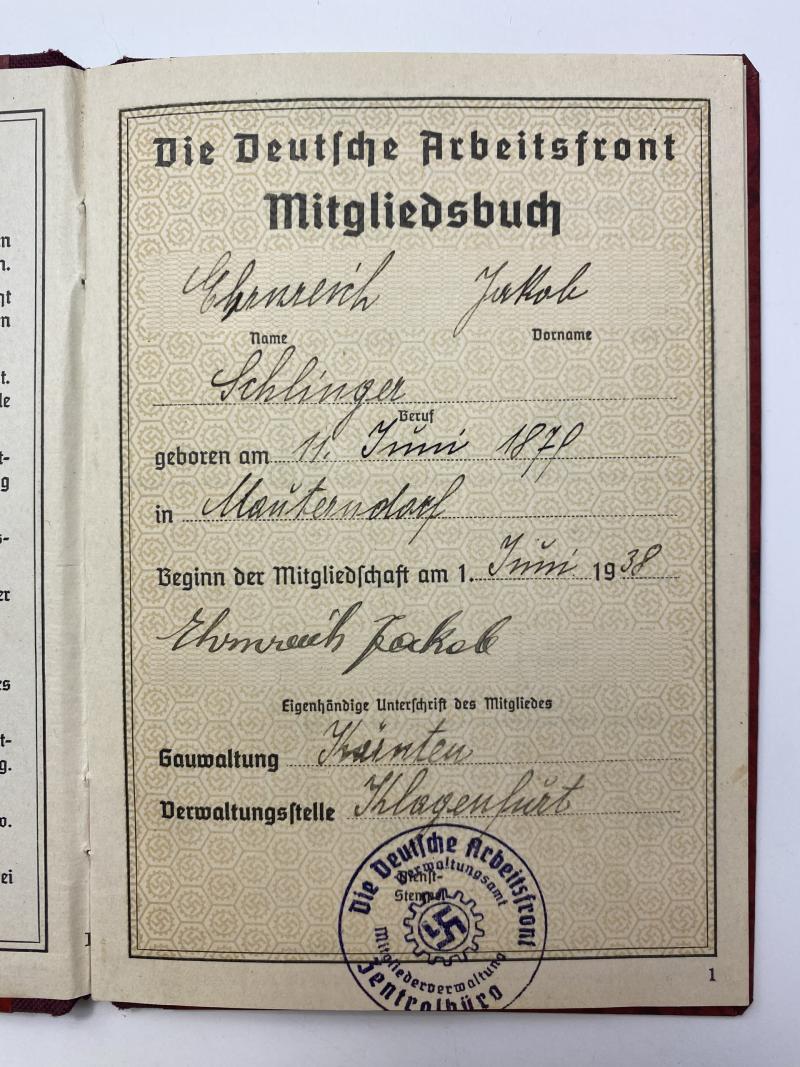 Die Deutsche Arbeitsfront
Mitgliedsbuch
Ehrnreich Jakob
Name Vorname
Schlinger
Beruf
geboren am 11. Juni 1879
in Mauterndorf
Beginn der Mitgliedschaft am 1. Juni 1938
Ehrnreich Jakob
Eigenhändige Unterschrift des Mitgliedes
Gauwaltung Kärnten
Verwaltungsstelle Klagenfurt
Die Deutsche Arbeitsfront
Verwaltungsamt
Dienst-
Stempel
Mitgliederverwaltung
Zentralbüro
1
en
n.
n
t.
g
s-
er
es
t-
g.
o.
ei